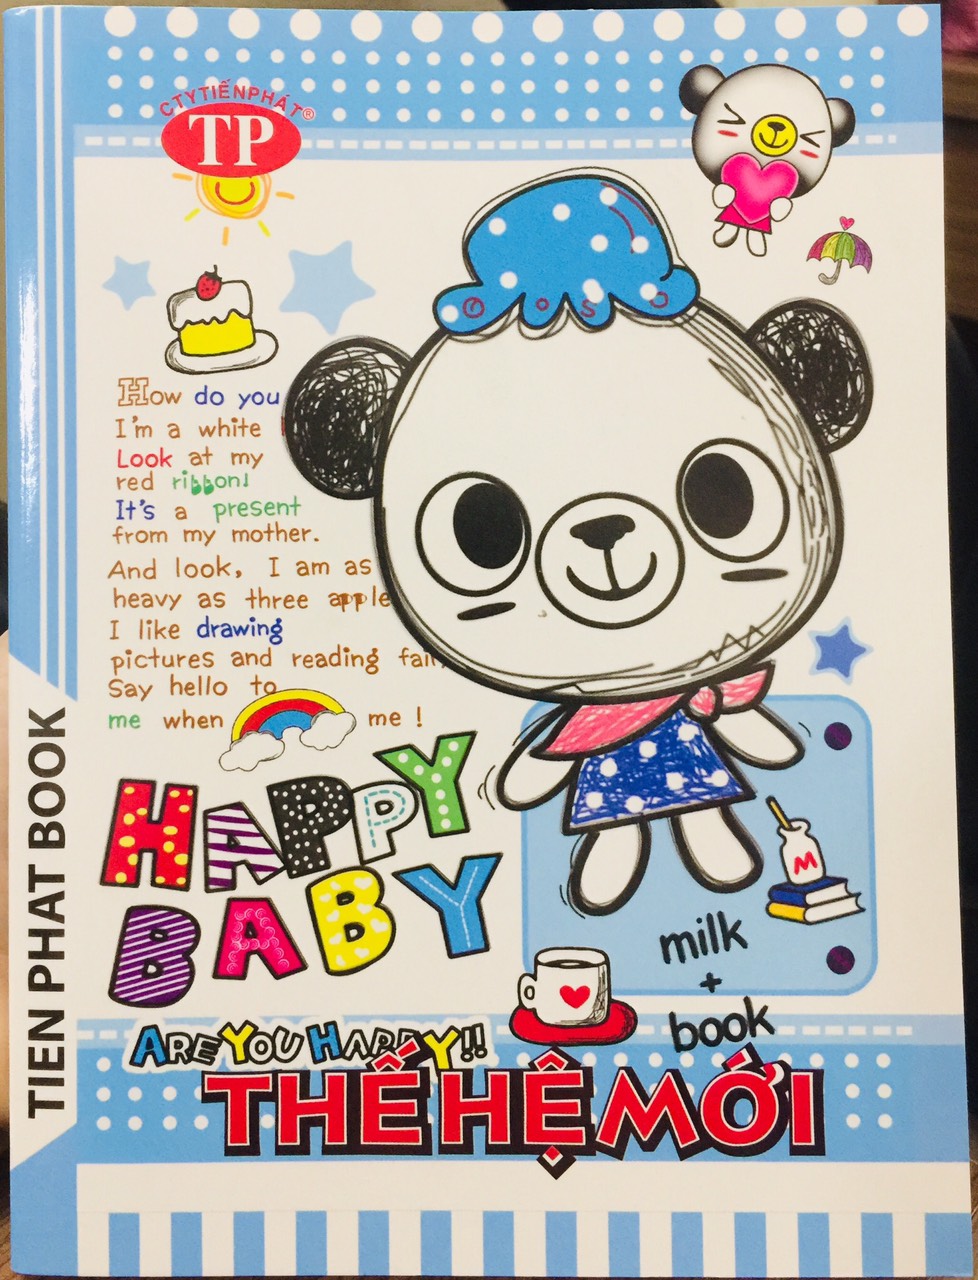 CTY TIẾN PHÁT®
TP
How do you
I'm a white
Look at my
red ribbon!
It's a present
from my mother.
And look, I am as
heavy as three apple
I like drawing
pictures and reading
Say hello to
me when me !
HAPPY
BABY
M
milk
+
book
ARE YOU HAPPY!!
THẾ HỆ MỚI
TIEN PHAT BOOK